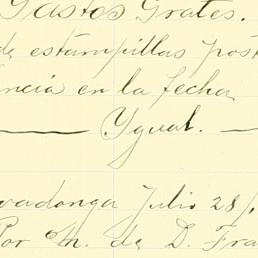 Gastos Grates.
de estampillas post
ncia en la fecha
Ygual.
vadonga Julio 28/
Por M. de D. Fra